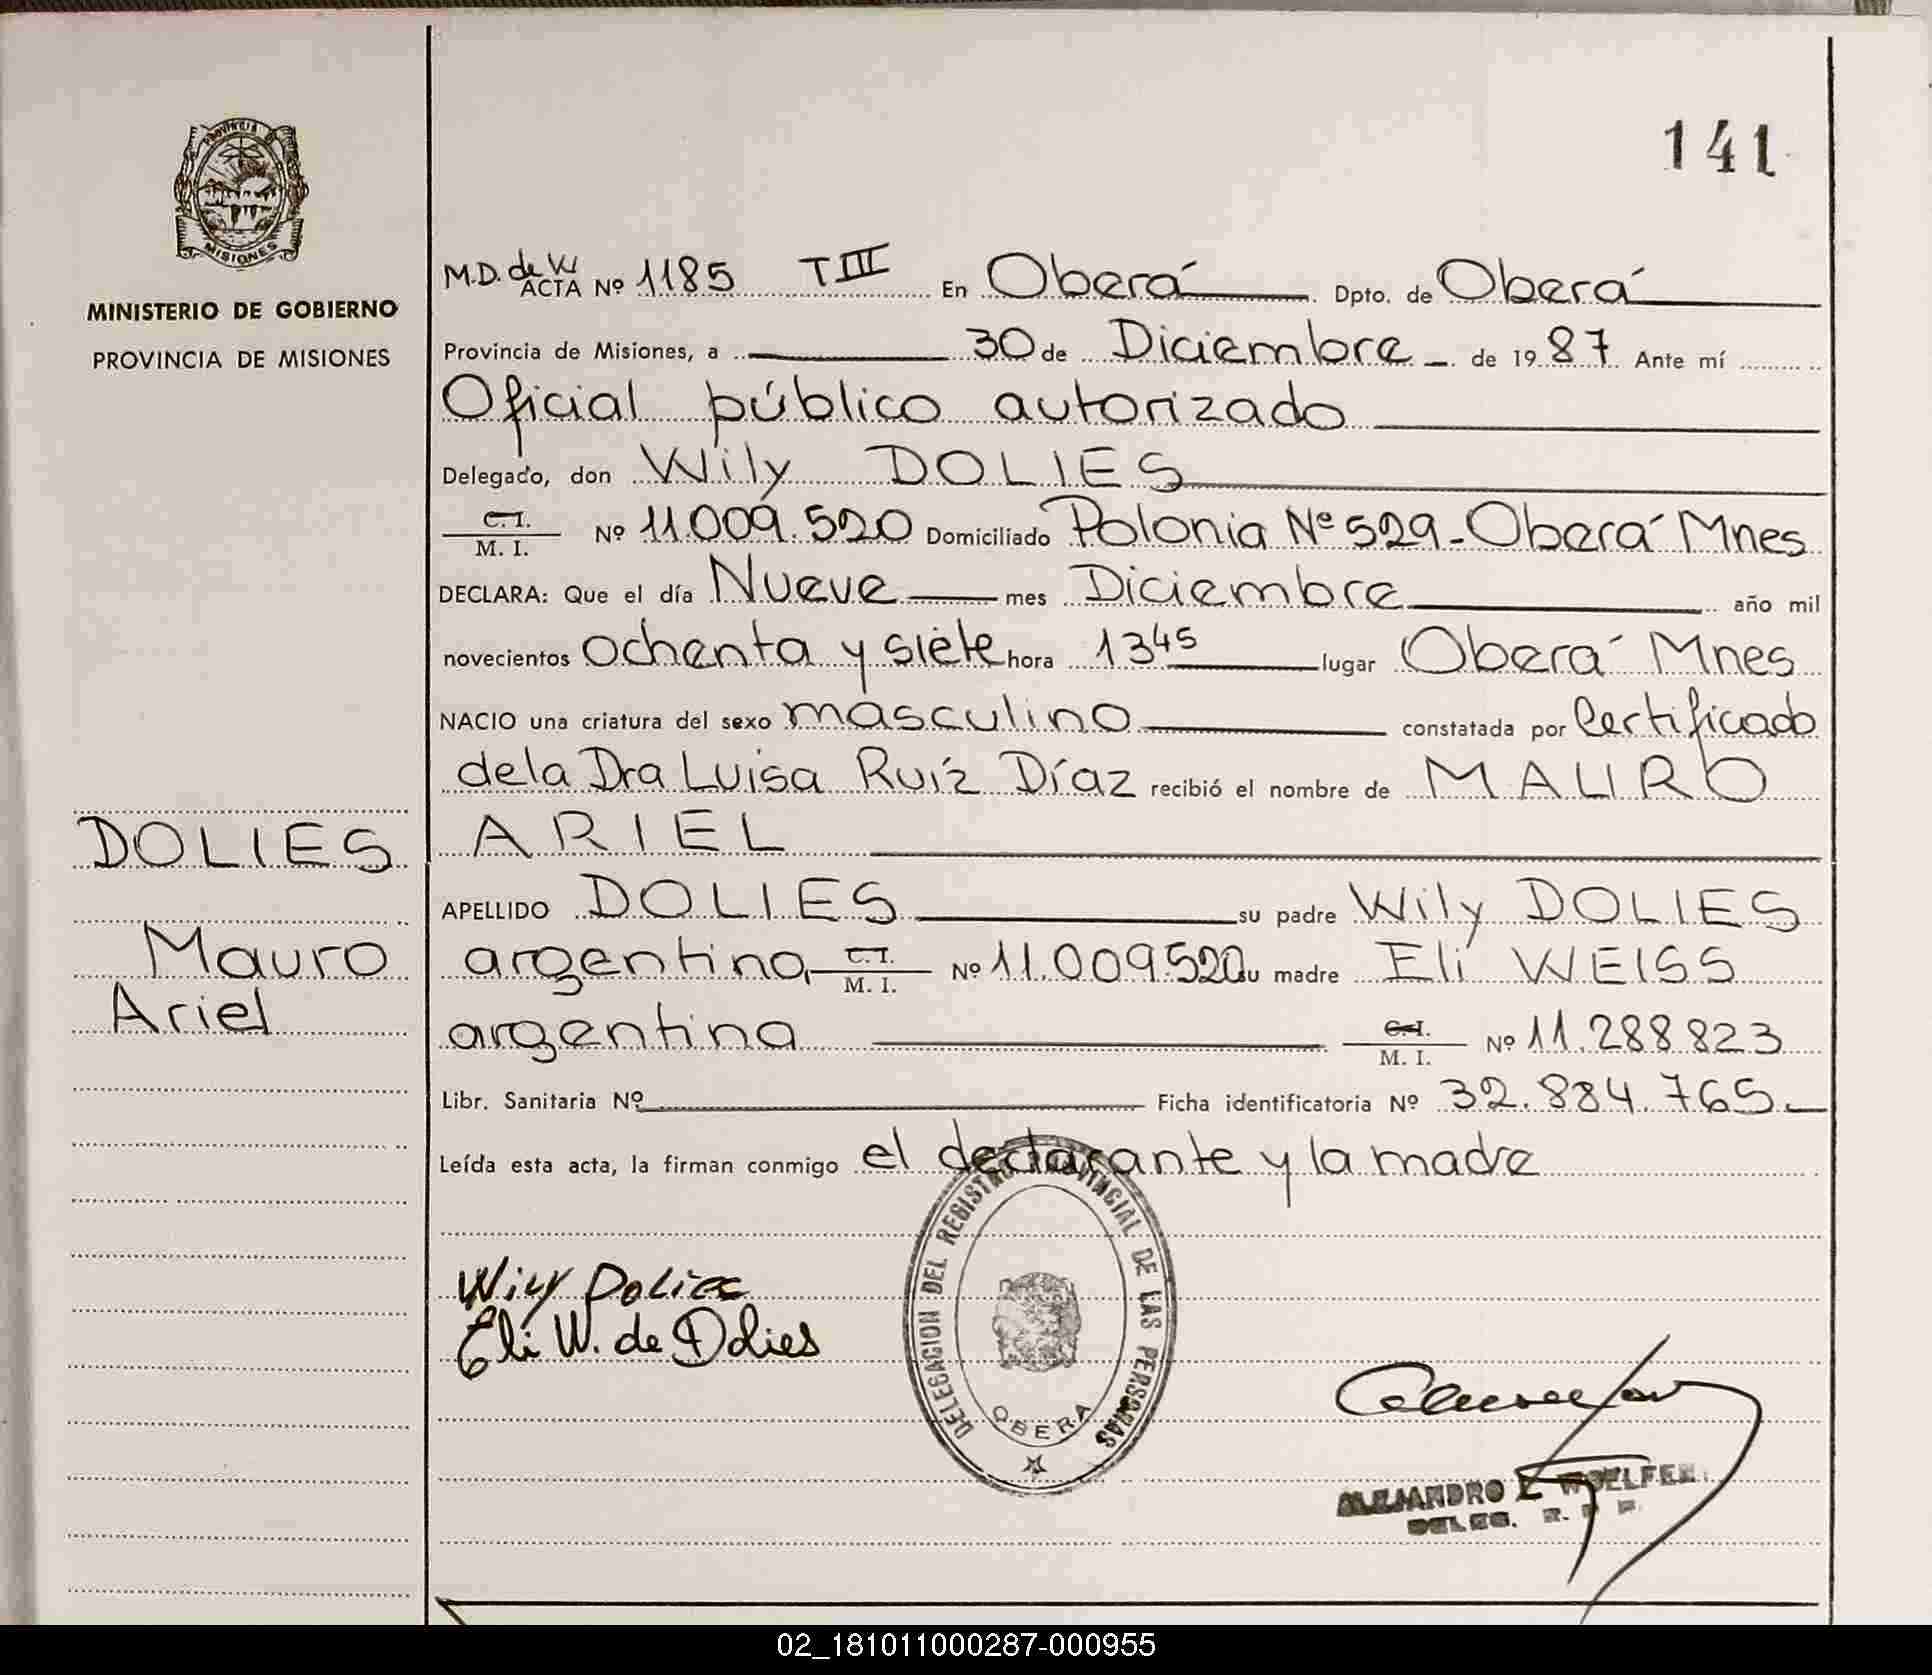 141
Provincia de
MISIONES
MINISTERIO DE GOBIERNO
PROVINCIA DE MISIONES
M.D. de W ACTA Nº 1185 T III En Oberá Dpto. de Oberá
Provincia de Misiones, a 30 de Diciembre de 1987 Ante mí
Oficial público autorizado
Delegado, don Wily DOLIES
C.I. M. I. Nº 11.009.520 Domiciliado Polonia Nº 529-Oberá Mnes
DECLARA: Que el día Nueve mes Diciembre año mil
novecientos ochenta y siete hora 13 45 lugar Oberá Mnes
NACIO una criatura del sexo masculino constatada por Certificado
dela Dra Luisa Ruíz Díaz recibió el nombre de MAURO
ARIEL
APELLIDO DOLIES su padre Wily DOLIES
argentino, C.I. M. I. Nº 11.009.520 su madre Eli WEISS
argentina C.I. M. I. Nº 11.288.823
Libr. Sanitaria Nº Ficha identificatoria Nº 32.884.765.-
Leída esta acta, la firman conmigo el declarante y la madre
DOLIES
Mauro
Ariel
Wily Dolies
Eli W. de Dolies
DELEGACION DEL REGISTRO PROVINCIAL DE LAS PERSONAS
OBERA
ALEJANDRO E. WOELFER
DELEG. R. P. P.
02_181011000287-000955